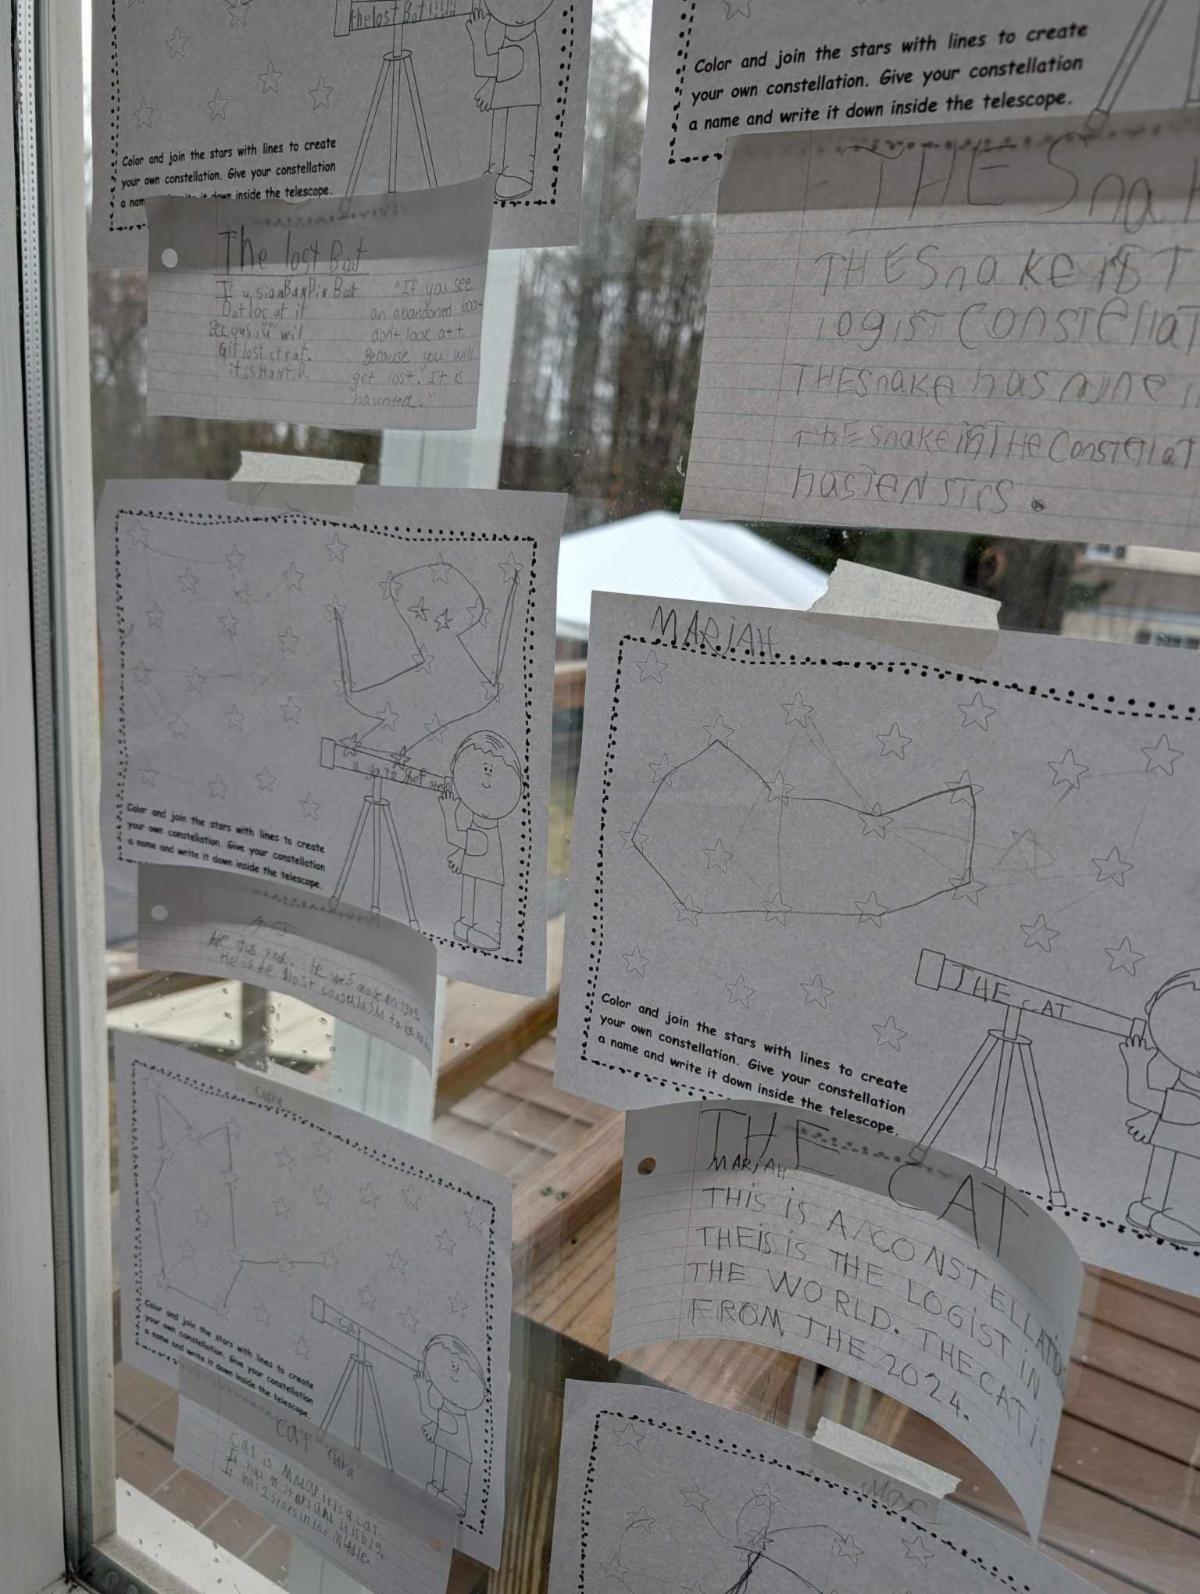 the lost Bat!!!!!
Color and join the stars with lines to create
your own constellation. Give your constellation
a name down inside the telescope.
The lost Bat
If u
Dot loc at it
Becaus u wil
Git lost
it is
"If you see
an abandoned boa-
dont look at it
Because you will
get lost. It is
haunted."
Color and join the stars with lines to create
your own constellation. Give your constellation
a name and write it down inside the telescope.
He is
Color and join the stars with lines to create
your own constellation. Give your constellation
a name and write it down inside the telescope.
cat
Color and join the stars with lines to create
your own constellation. Give your constellation
a name and write it down inside the telescope.
cat
cat is it is a cat.
It has stars and it is big.
It has 2 stars in the middle.
Color and join the stars with lines to create
your own constellation. Give your constellation
a name and write it down inside the telescope.
THE Sna
THE Snake is T
logist Constellat
THE Snake has nine
THE Snake is THE Constellat
has TEN STRS.
MARIAH
THE CAT
Color and join the stars with lines to create
your own constellation. Give your constellation
a name and write it down inside the telescope.
THE CAT
MARIAH
THIS IS A CONSTELLATION
THEISIS THE LOGIST IN
THE WORLD. THE CAT IS
FROM THE 2024.